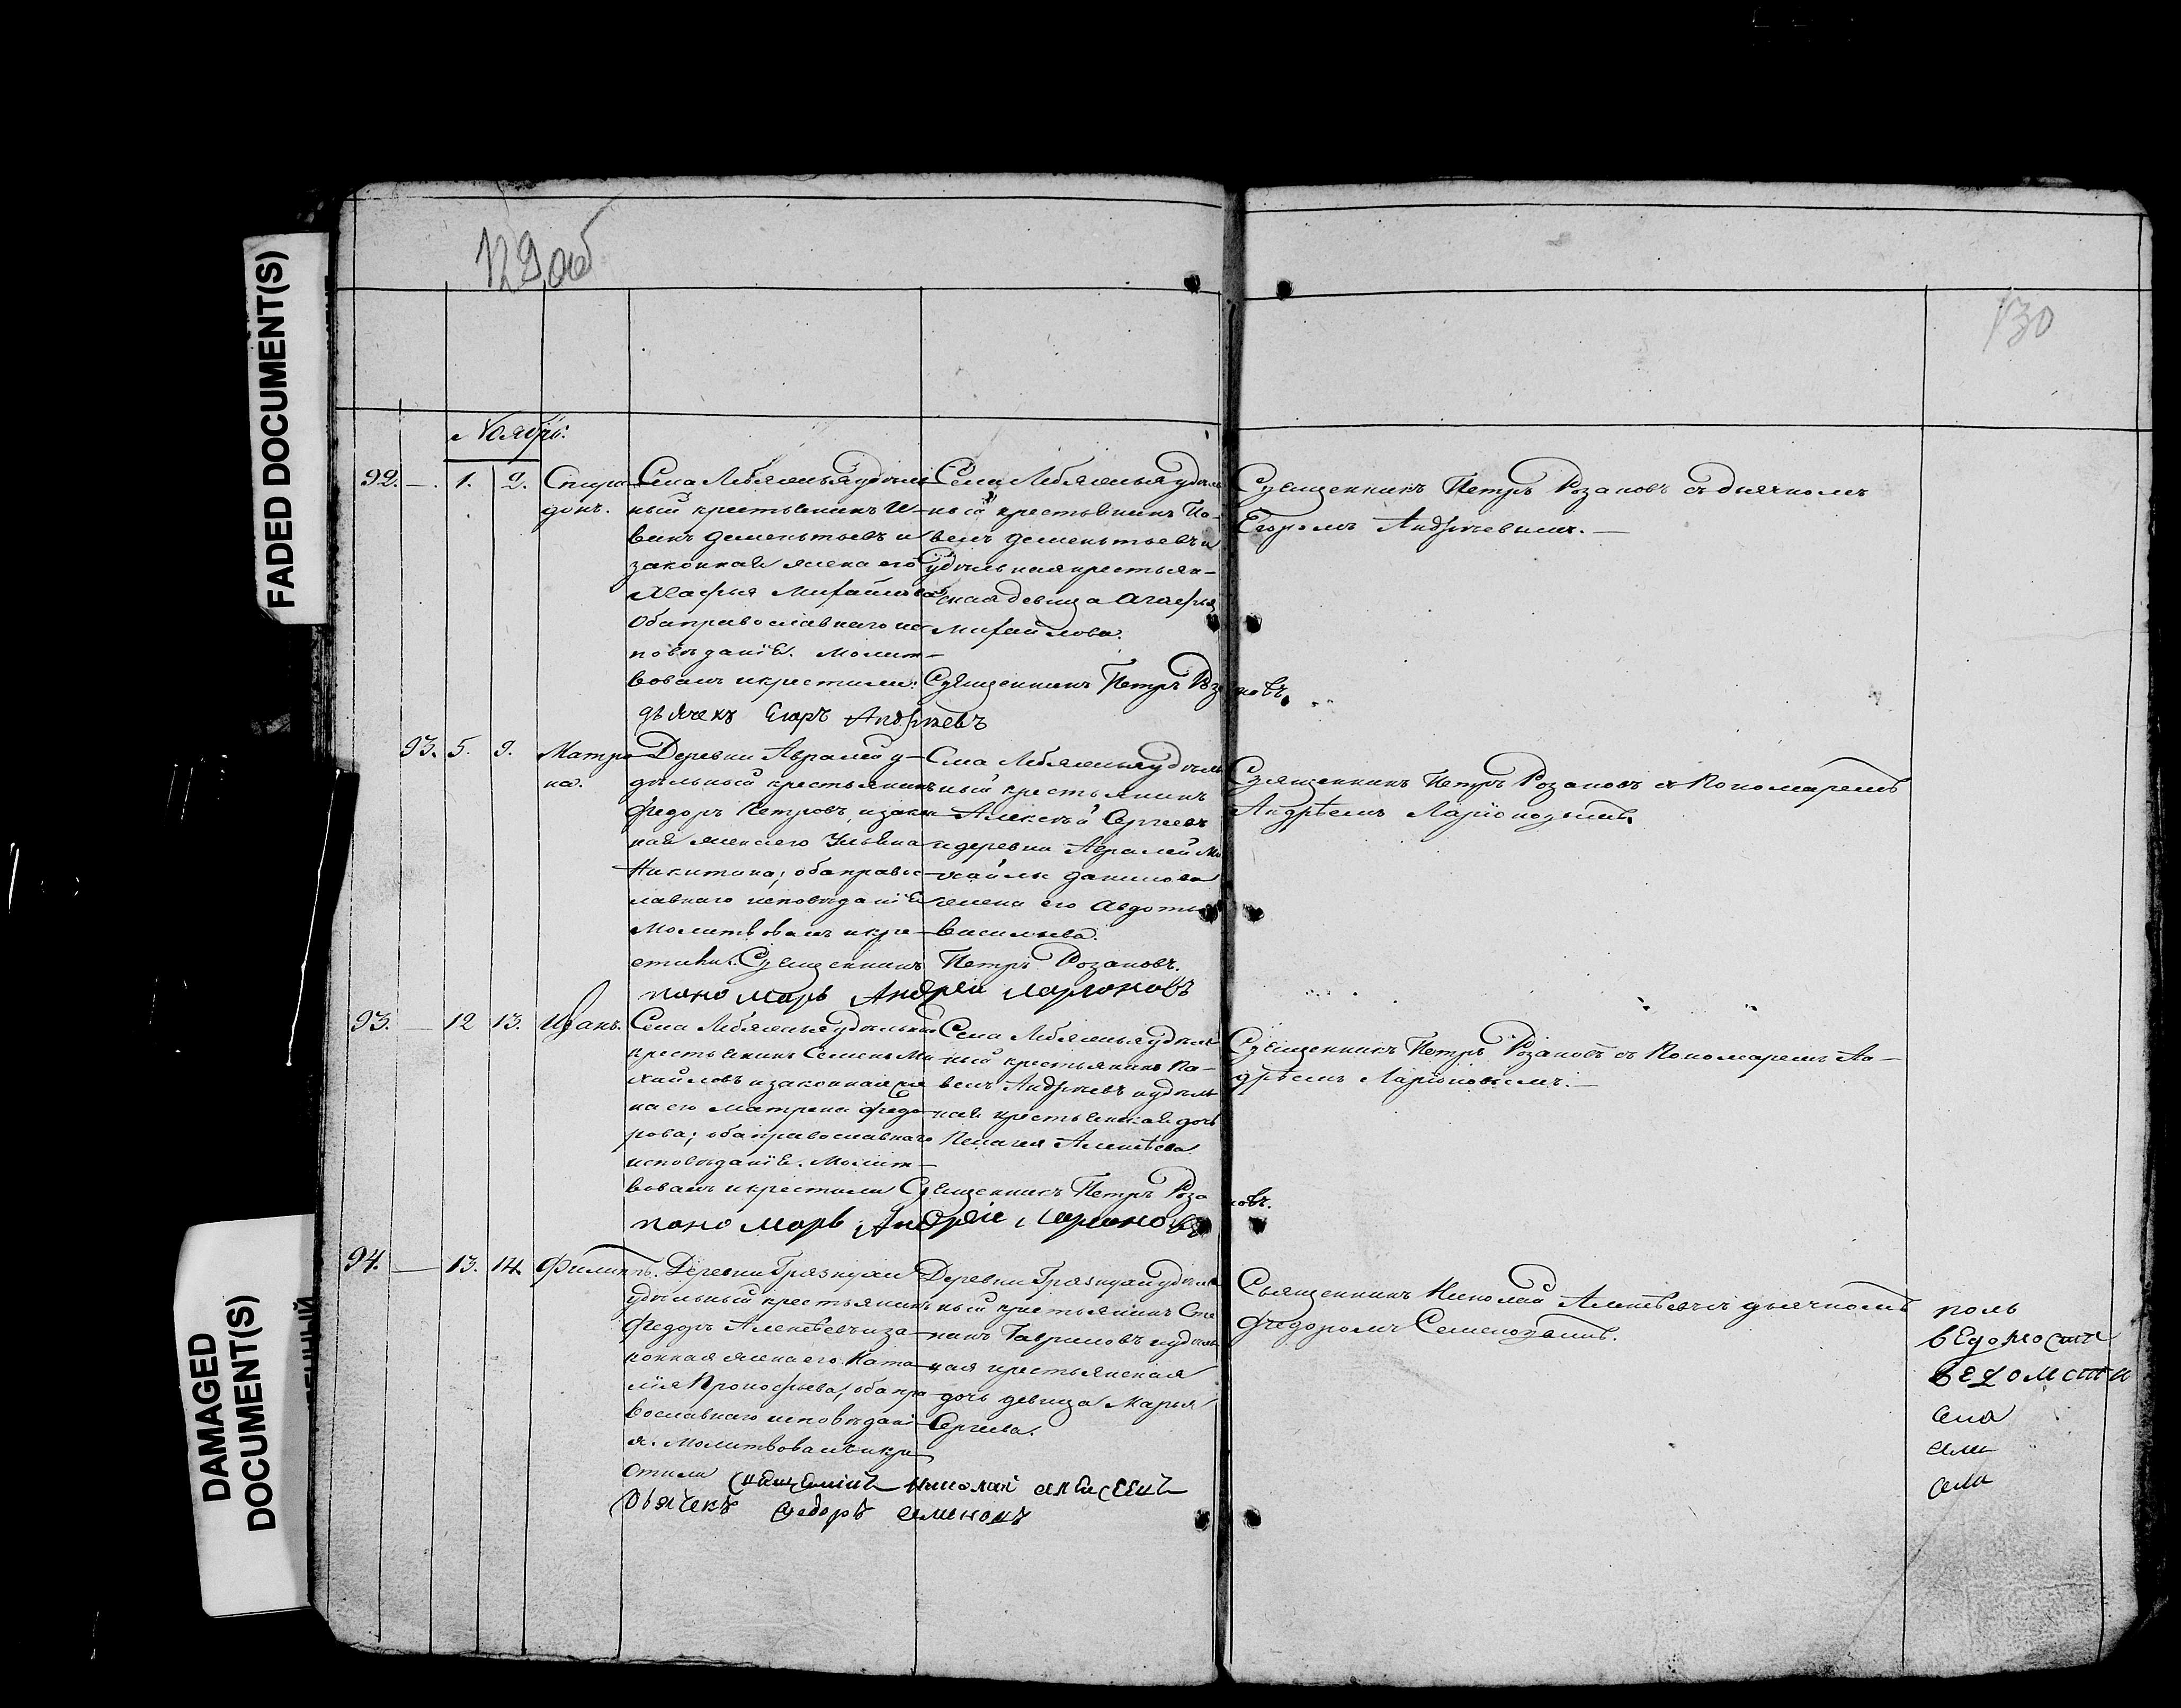 FADED DOCUMENT(S)
DAMAGED
DOCUMENT(S)
129 об
130
Ноябрь.
92. — 1. 2. Спири
донъ.
Села Лебяжья удѣль
ный крестьянинъ И
ванъ Дементьевъ и
законная жена его
Агафья Михайлова
Оба православнаго ис
повѣданія. Молит
вовалъ и крестили: Священникъ Петръ Розановъ.
дьячекъ Егоръ Андреевъ
Села Лебяжья удѣль
ный крестьянинъ Па
велъ Дементьевъ и
удѣльная крестьян
ская девица Агафья
Михайлова.
Священникъ Петръ Розановъ съ дьячкомъ
Егоромъ Андреевымъ. —
93. 5. 9. Матре
на.
Деревни Авралей у
дѣльный крестьянинъ
Федоръ Петровъ, и закон
ная жена его Ульяна
Никитина; оба правос
лавнаго исповѣданія
Молитвовалъ и кре
стили. Священникъ Петръ Розановъ.
пономарь Андрей Ларионовъ
Села Лебяжья удѣль
ный крестьянинъ
Алексѣй Сергеевъ
и деревни Авралей Ми
хайлы Данилова
жена его Авдотья
Васильева.
Священникъ Петръ Розановъ съ Пономаремъ
Андрѣемъ Ларіоновымъ.
93. — 12 13. Иванъ.
Села Лебяжья удѣльный
крестьянинъ Семенъ Ми
хайловъ и законная же
на его Матрена Федо
рова; оба православнаго
исповѣданія. Молит
вовалъ и крестили Священникъ Петръ Розановъ.
пономарь Андрей Ларионовъ
Села Лебяжья удѣль
ный крестьянинъ Па
велъ Андреевъ и удѣль
ная крестьянская дочь
Пелагея Алексѣева
Священникъ Петръ Розановъ съ Пономаремъ Ан
дрѣемъ Ларіоновымъ. —
94. — 13. 14. Филиппъ.
Деревни Грязнухи
удѣльный крестьянинъ
Федоръ Алексѣевъ и за
конная жена его Ната
лія Прокофьева; оба пра
вославнаго исповѣдані
я. Молитвовалъ и кре
стили Священникъ Николай Алексеевъ
Дьячекъ Федоръ Семеновъ
Деревни Грязнухи удѣль
ный крестьянинъ Сте
панъ Гавриловъ и удѣль
ная крестьянская
дочь девица Марья
Сергеева.
Священникъ Николай Алексѣевъ съ дьячкомъ
Федоромъ Семеновымъ.
поль
ведомости
ведомсти
села
села